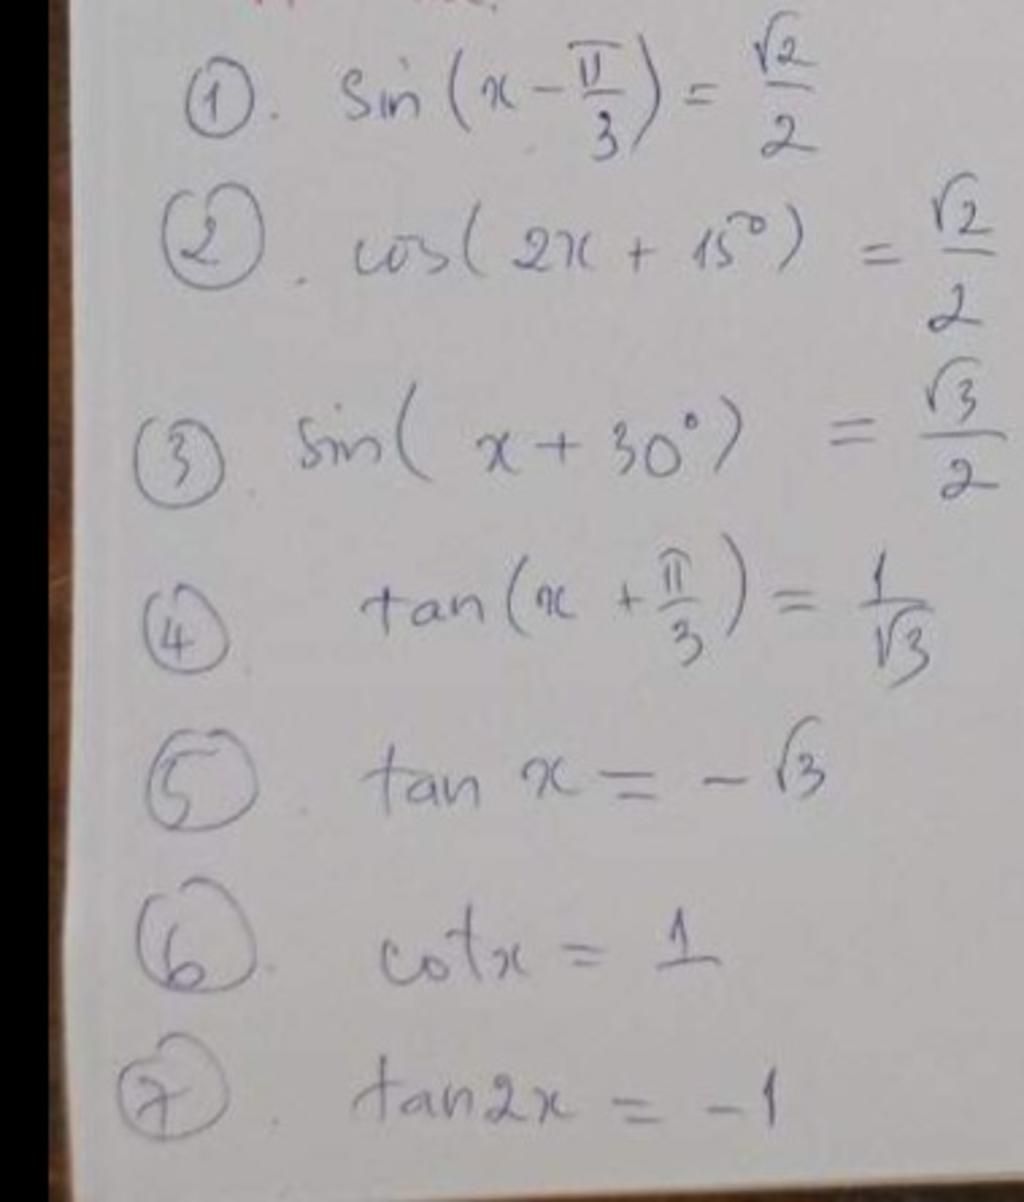 ①. sin(x - π/3) = √2/2
②. cos(2x + 15°) = √2/2
③. sin(x + 30°) = √3/2
④ tan(x + π/3) = 1/√3
⑤. tan x = - √3
⑥. cotx = 1
⑦. tan2x = -1